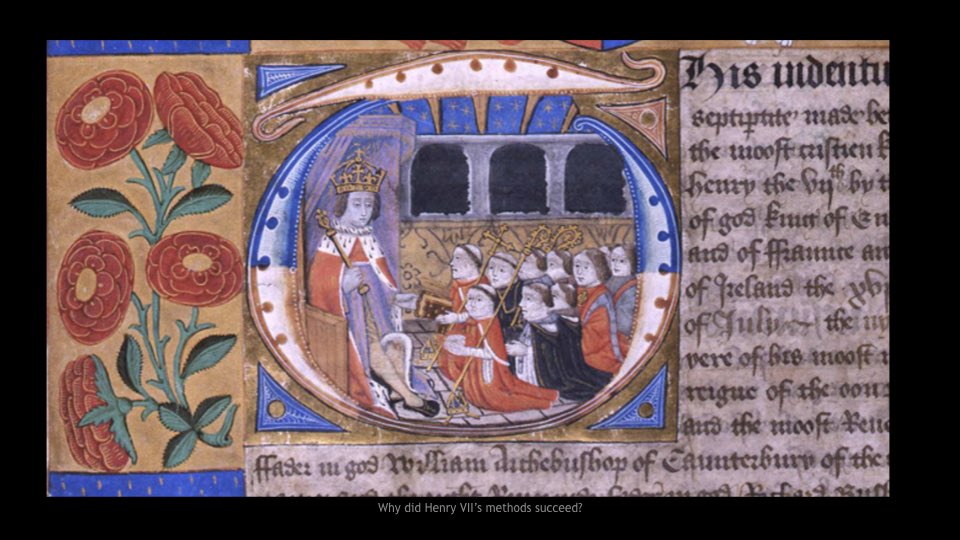 His indentu
septiptite made be
the moost cristien k
henry the vijth by t
of god king of En
and of ffraunce an
of Ireland the xvj
of July the
yere of his moost
reigne of the
and the moost Reue
ffader in god William Archebushop of Caunterbury of the
Why did Henry VII's methods succeed?